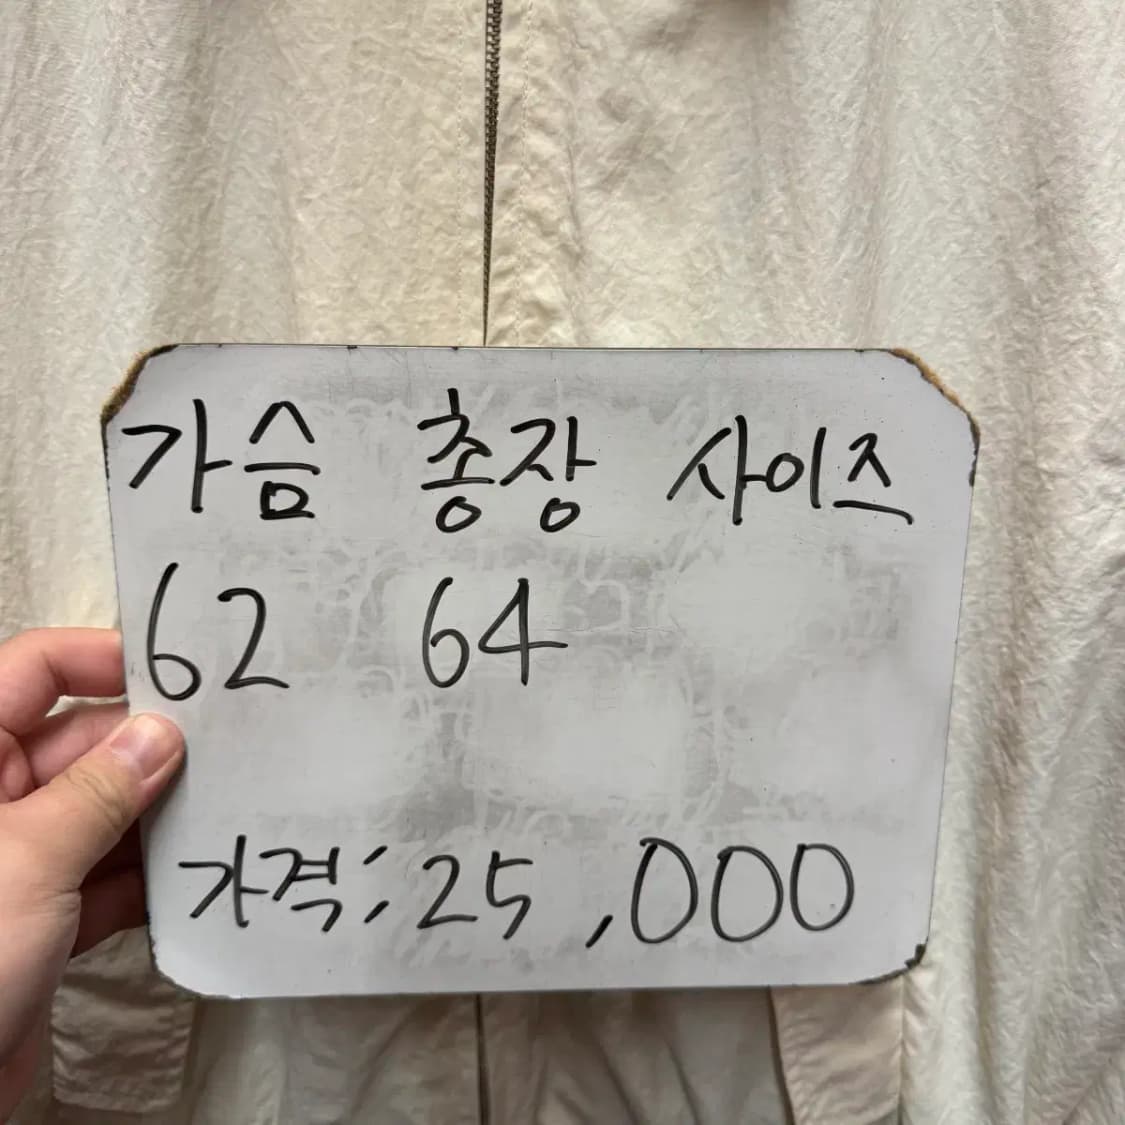 가슴 총장 사이즈
62 64
가격: 25,000